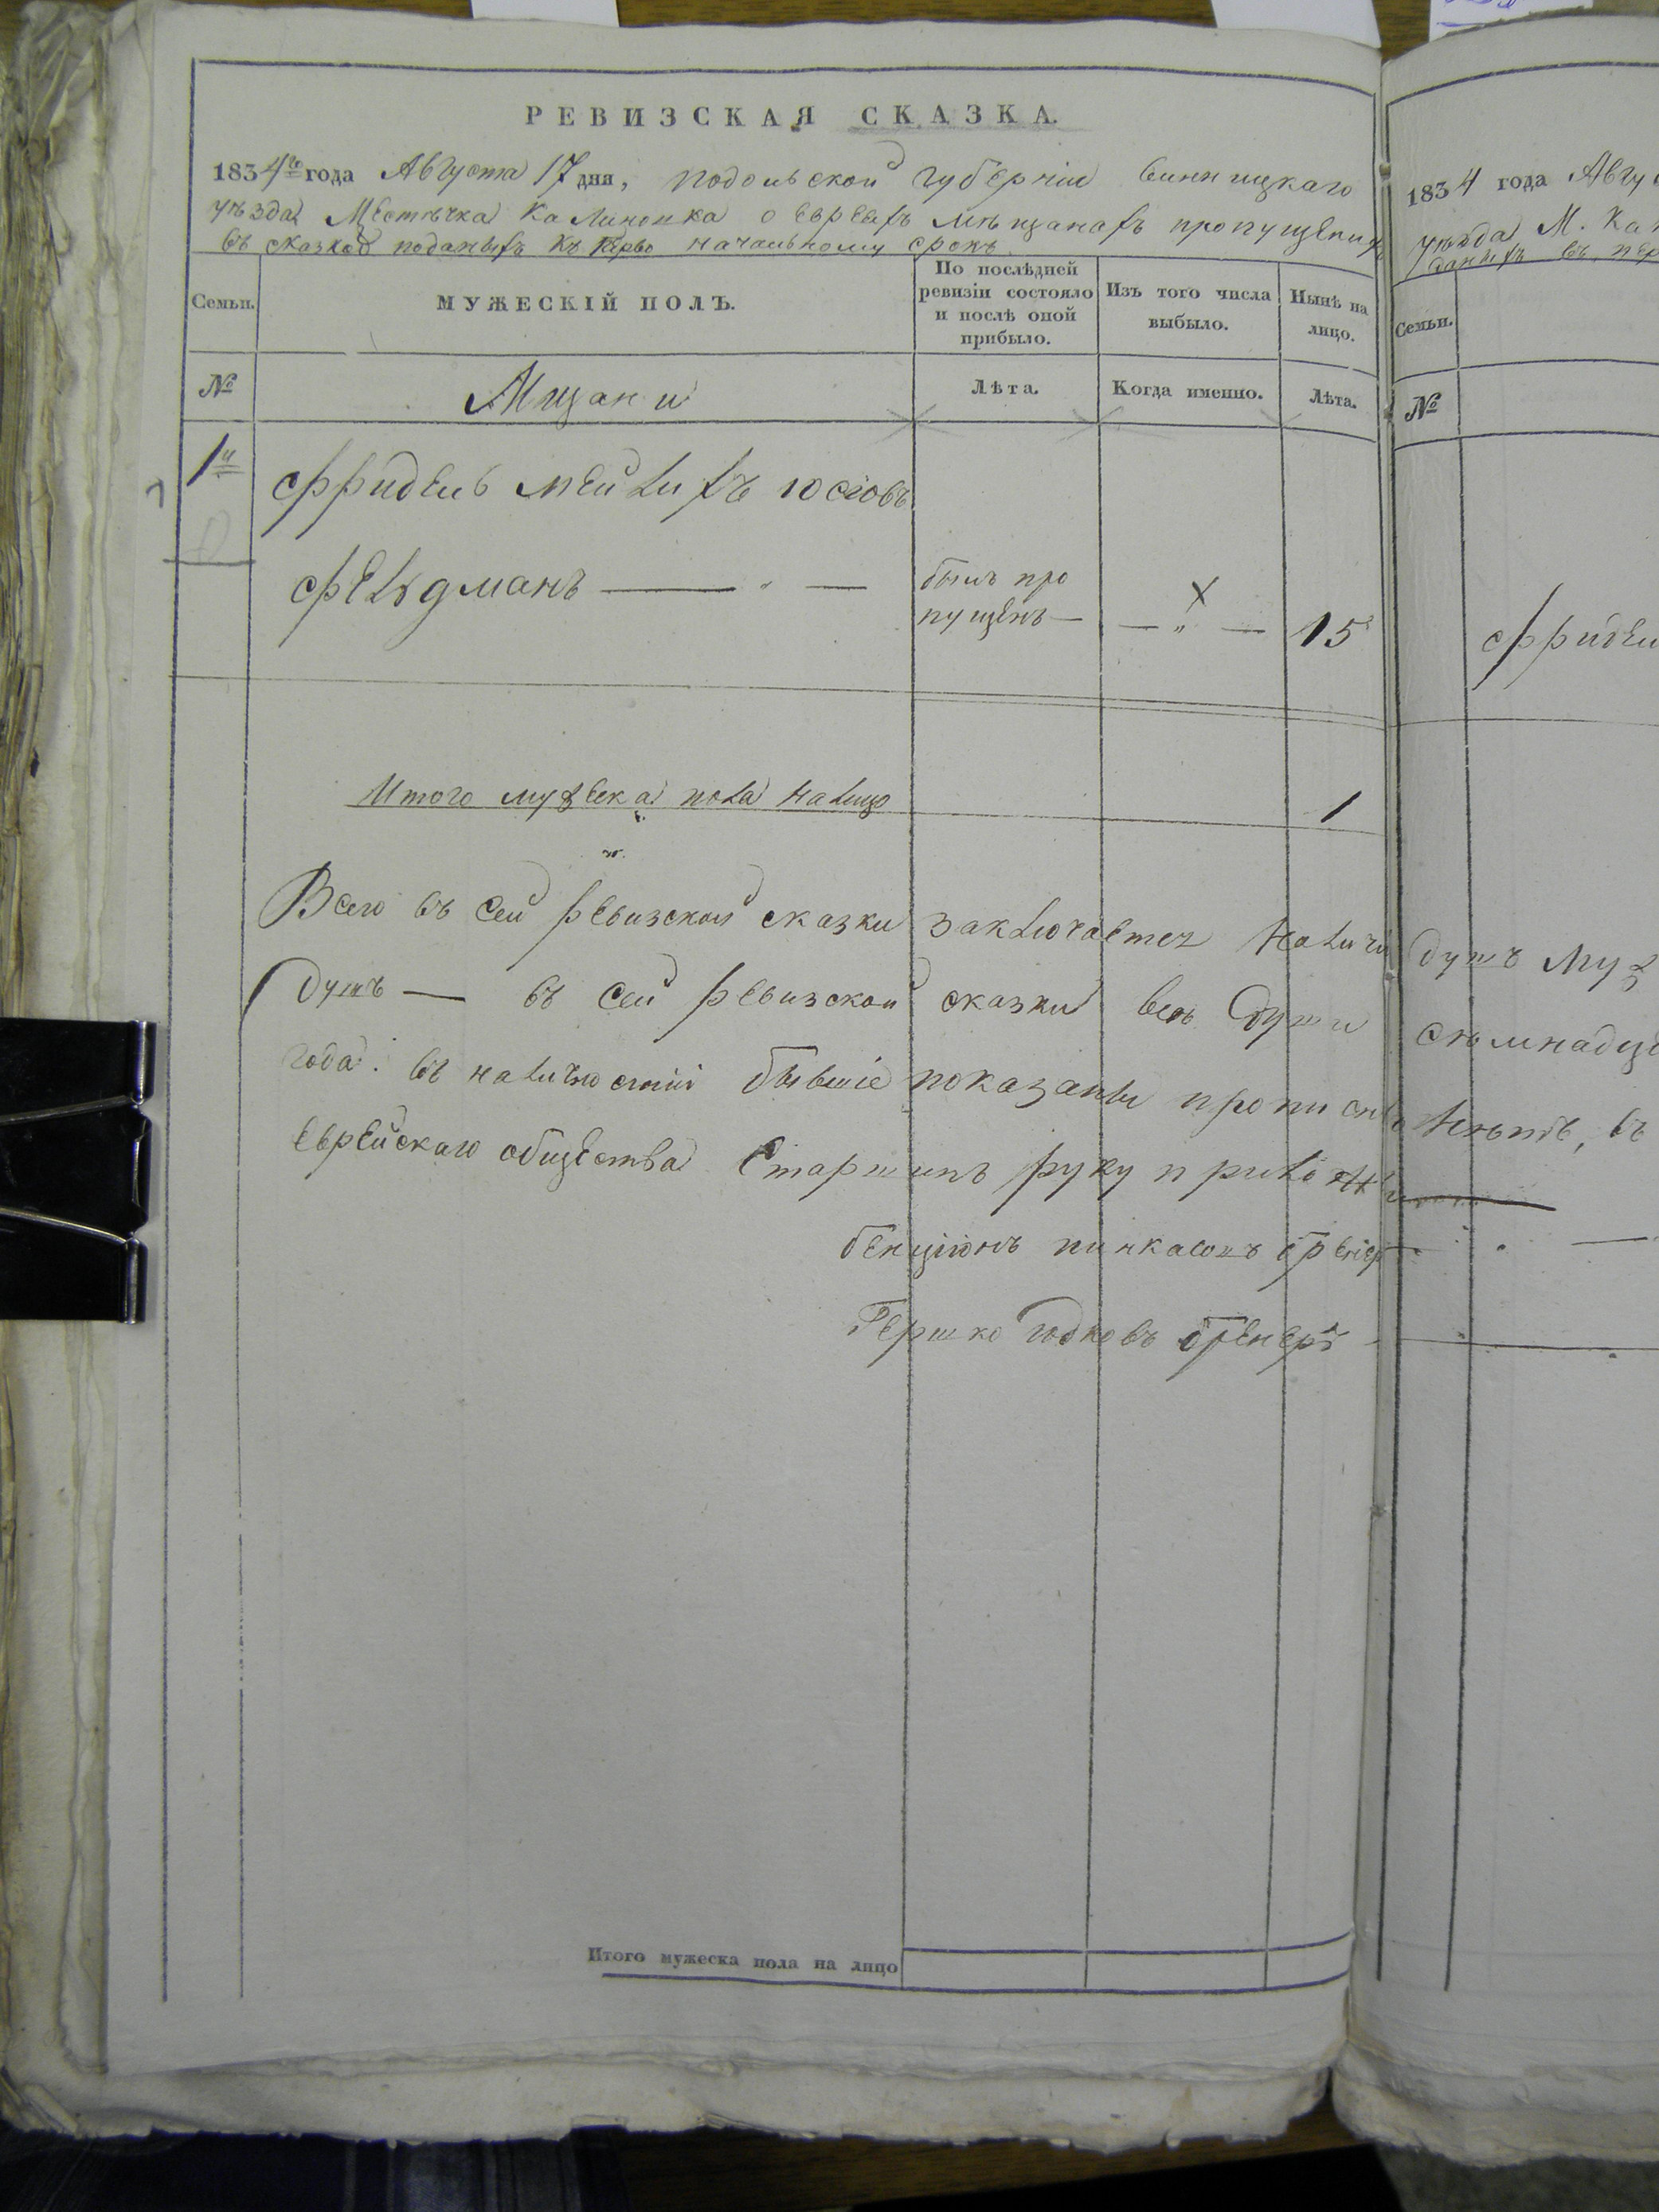 РЕВИЗСКАЯ СКАЗКА.
1834го года Августа 17 дня, подольской губернии винницкаго
уъзда Местѣчка Калиновка о евреяхъ мѣщанахъ пропущеных
въ сказкахъ поданыхъ къ перво начальному срокъ
Семьи.
МУЖЕСКІЙ ПОЛЪ.
По послѣдней ревизіи состояло и послѣ оной прибыло.
Изъ того числа выбыло.
Нынѣ на лицо.
№
Мщани
Лѣта.
Когда именно.
Лѣта.
1й
Фридель Мейлихъ Юсіовъ
Фельдманъ — " —
былъ про
пущенъ —
— " —
15
Итого мужеска пола налицо
1
Всего въ сей ревизской сказки заключается
душъ — въ сей ревизской сказки все души
года. въ наличности бывшіе показаны
Еврейскаго общества Старшинъ руку
бенціонъ пинкасовъ
Гершко Юдковъ бренеръ
Итого мужеска пола на лицо
1834 года Авгу
уъзда М. Ка
даныхъ въ пер
Семьи.
№
Фридел
душъ муж
семнадца